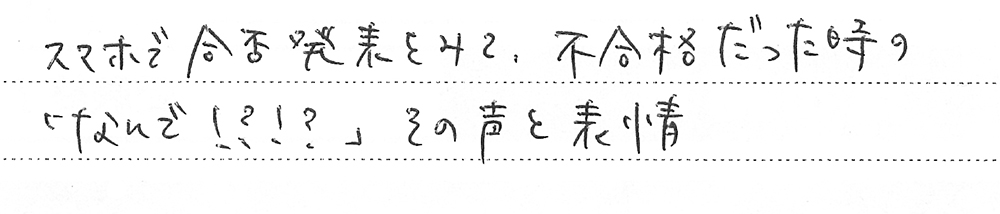 スマホで合否発表をみて、不合格だった時の
「なんで!?!?」その声と表情